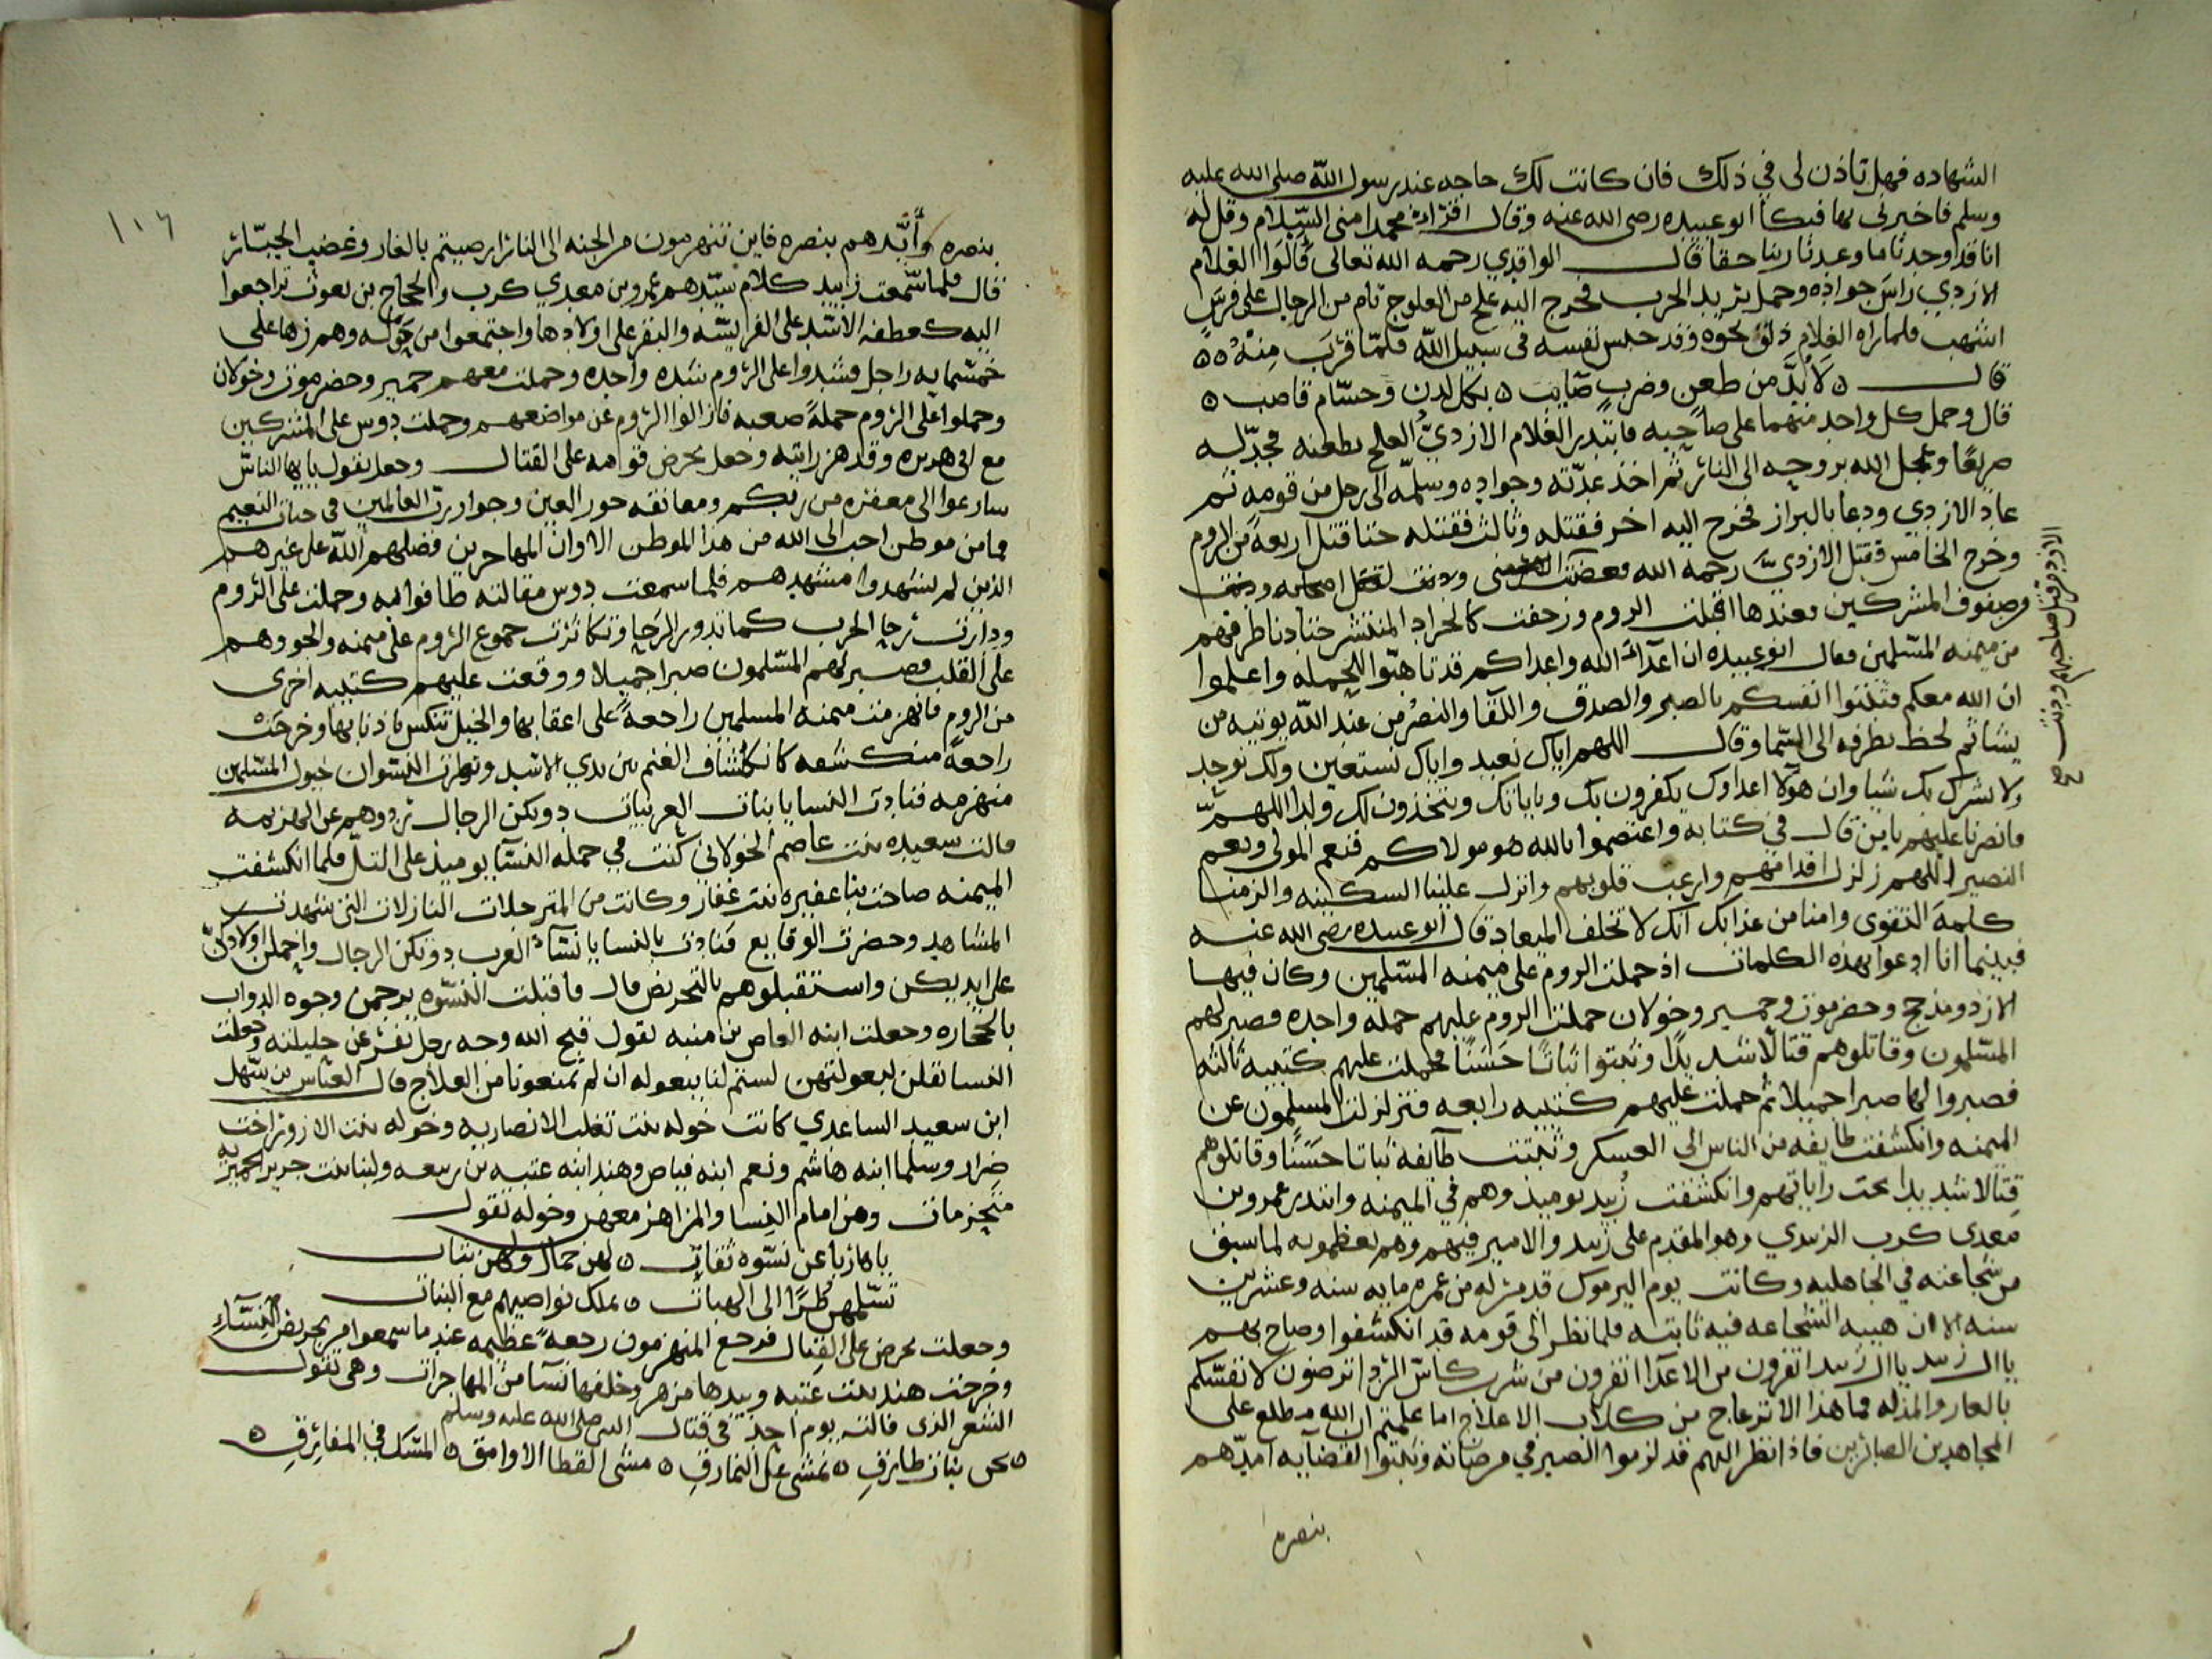 الشهاده فهل تاذن لى في ذلك فان كانت لك حاجه عند رسول الله صلى الله عليه
وسلم فاخبرنى بها فبكا ابو عبيده رضى الله عنه وقال اقرا محمدا منى السلام وقل له
انا قد وجدنا ما وعدنا ربنا حقا قال الواقدي رحمه الله تعالى قالوا الغلام
الازدي راس جواده وحمل يريد الحرب فخرج اليه علج من العلوج تام من الرجال على فرس
اشهب فلما راه الغلام نحوه وقد حبس نفسه في سبيل الله فلما قرب منه
قال لا بد من طعن وضرب صايب بكل لدن وحسام قاصب
قال وحمل كل واحد منهما على صاحبه فابتدر الغلام الازدي العلج بطعنه فجدله
صريعا وعجل الله بروحه الى النار ثم اخذ عدته وجواده وسلمه الى رجل من قومه ثم
عاد الازدي ودعا بالبراز فخرج اليه اخر فقتله وثالث فقتله حتا قتل اربعة من الروم
وخرج الخامس فقتل الازدي رحمه الله فغضبت
وصفوف المشركين فعندها اقبلت الروم وزحفت كالجراد المنتشر حتا دنا طرفهم
من ميمنه المسلمين فقال ابو عبيده ان اعداء الله واعداكم قد تاهبوا للحمله واعلموا
ان الله معكم فثبتوا انفسكم بالصبر والصدق واللقا والنصر من عند الله يوتيه من
يشا ثم لحظ بطرفه الى السما وقال اللهم اياك نعبد واياك نستعين ولك نوحد
ولا نشرك بك شيا وان هولا اعداوك يكفرون بك وباياتك ويتخذون لك ولدا اللهم
فانصرنا عليهم يا من قال في كتابه واعتصموا بالله هو مولاكم فنعم المولى ونعم
النصير اللهم زلزل اقدامهم وارعب قلوبهم وانزل علينا السكينه والزمنا
كلمة التقوى وامنا من عذابك انك لا تخلف الميعاد قال ابو عبيده رضى الله عنه
فبينما انا ادعوا بهذه الكلمات اذ حملت الروم على ميمنه المسلمين وكان فيها
الازد ومذحج وحضرموت وحمير وخولان حملت الروم عليهم حمله واحده فصبر لهم
المسلمون وقاتلوهم قتالا شديدا وثبتوا ثباتا حسنا فحملت عليهم كتيبه ثالثه
فصبروا لها صبرا جميلا ثم حملت عليهم كتيبه رابعه فتزلزلت المسلمون عن
الميمنه وانكشفت طايفه من الناس الى العسكر وثبتت طآئفه ثباتا حسنا وقاتلوهم
قتالا شديدا تحت راياتهم وانكشفت زبيد يوميذ وهم في الميمنه وابتدر عمرو بن
معدى كرب الزبيدي وهو المقدم على زبيد والامير فيهم وهم يعظمونه لما سبق
من شجاعته في الجاهليه وكانت يوم اليرموك قد مر له من عمره مايه سنه وعشرين
سنه الا ان هيبه الشجاعه فيه ثابته فلما نظر الى قومه قد انكشفوا وصاح بهم
يا ال زبيد يا ال زبيد اتفرون من الاعدا اتفرون من شرب كاس الردا اترضون لانفسكم
بالعار والمذله فما هذا الانزعاج من كلاب الاعلاج اما علمتم ان الله مطلع على
المجاهدين الصابرين فاذا نظر اليهم قد لزموا الصبر في مرضاته وثبتوا لقضايه امدهم
بنصره
الازد من قتل صاحبهم ودنت صح
١١٦
بنصره وأيدهم بنصره فاين تنهزمون من الجنه الى النار ارضيتم بالعار وغضب الجبار
قال فلما سمعت زبيد كلام سيدهم عمرو بن معدي كرب والحجاج بن يغوث تراجعوا
اليه كعطفه الاسد على الفريسه والبقر على اولادها واجتمعوا من حوله وهم زها على
خمسمايه راجل فشدوا على الروم شده واحده وحملت معهم حمير وحضرموت وخولان
وحملوا على الروم حملة صعبه فازالوا الروم عن مواضعهم وحملت دوس على المشركين
مع ابي هريره وقد هز رايته وجعل يحرض قومه على القتال وجعل يقول يايها الناس
سارعوا الى مغفره من ربكم ومعانقه حور العين وجوار رب العالمين في جنات النعيم
فما من موطن احب الى الله من هذا الموطن الا وان المهاجرين فضلهم الله على غيرهم
الذين لم يشهدوا مشهدهم فلما سمعت دوس مقالته طافوا به وحملت على الروم
ودارت رحا الحرب كما تدور الرحا وتكاثرت جموع الروم على ميمنه
على القلب فصبر لهم المسلمون صبرا جميلا ووقعت عليهم كتيبه اخرى
من الروم فانهزمت ميمنه المسلمين راجعة على اعقابها والخيل تنكس باذنابها وخرجت
راجعة منكشفه كانكشاف الغنم بين يدي الاسد ونظرت النسوان خيول المسلمين
منهزمه فنادت النسا يا بنات العربيات دونكن الرجال ردوهم عن الهزيمه
قالت سعيده بنت عاصم الخولاني كنت في جمله النسآ يوميذ على التل فلما انكشفت
الميمنه صاحت بنا عفيره بنت غفار وكانت من المترجلات النازلات التى شهدت
المشاهد وحضرت الوقايع فنادت بالنسا يا نسآ العرب دونكن الرجال واحملن اولادكن
على ايديكن واستقبلوهم بالتحريض قال فاقبلت النسوه يرجمن وجوه الدواب
بالحجاره وجعلت ابنه العاص بن منبه تقول قبح الله وجه رجل يفر عن حليلته وجعلت
النسا تقلن لبعولتهن لستم لنا ببعوله ان لم تمنعونا من العلاج قال العباس بن سهل
ابن سعيد الساعدي كانت خوله بنت ثعلب الانصاريه وخوله بنت الازور اخت
ضرار وسلما ابنه هاشم ونعم ابنه فياض وهند ابنه عتبه بن ربيعه ولبنا بنت جرير الحميريه
متحزمات وهن امام النسا والمزاهر معهن وخوله تقول
يا هاربا عن نسوه ثقات لهن جمال ولهن ثبات
تسلمهن طرا الى الهبات تملك نواصيهم مع البنات
وجعلت تحرض على القتال فرجع المنهزمون رجعة عظيمه عندما سمعوا من تحريض النسآء
وخرجت هند بنت عتبه وبيدها مزهر وخلفها نسآ من المهاجرات وهى تقول
الشعر الذى قالته يوم احد في قتال النبى صلى الله عليه وسلم
نحن بنات طارق نمشى على النمارق مشى القطا الاوامق المسك في المفارق